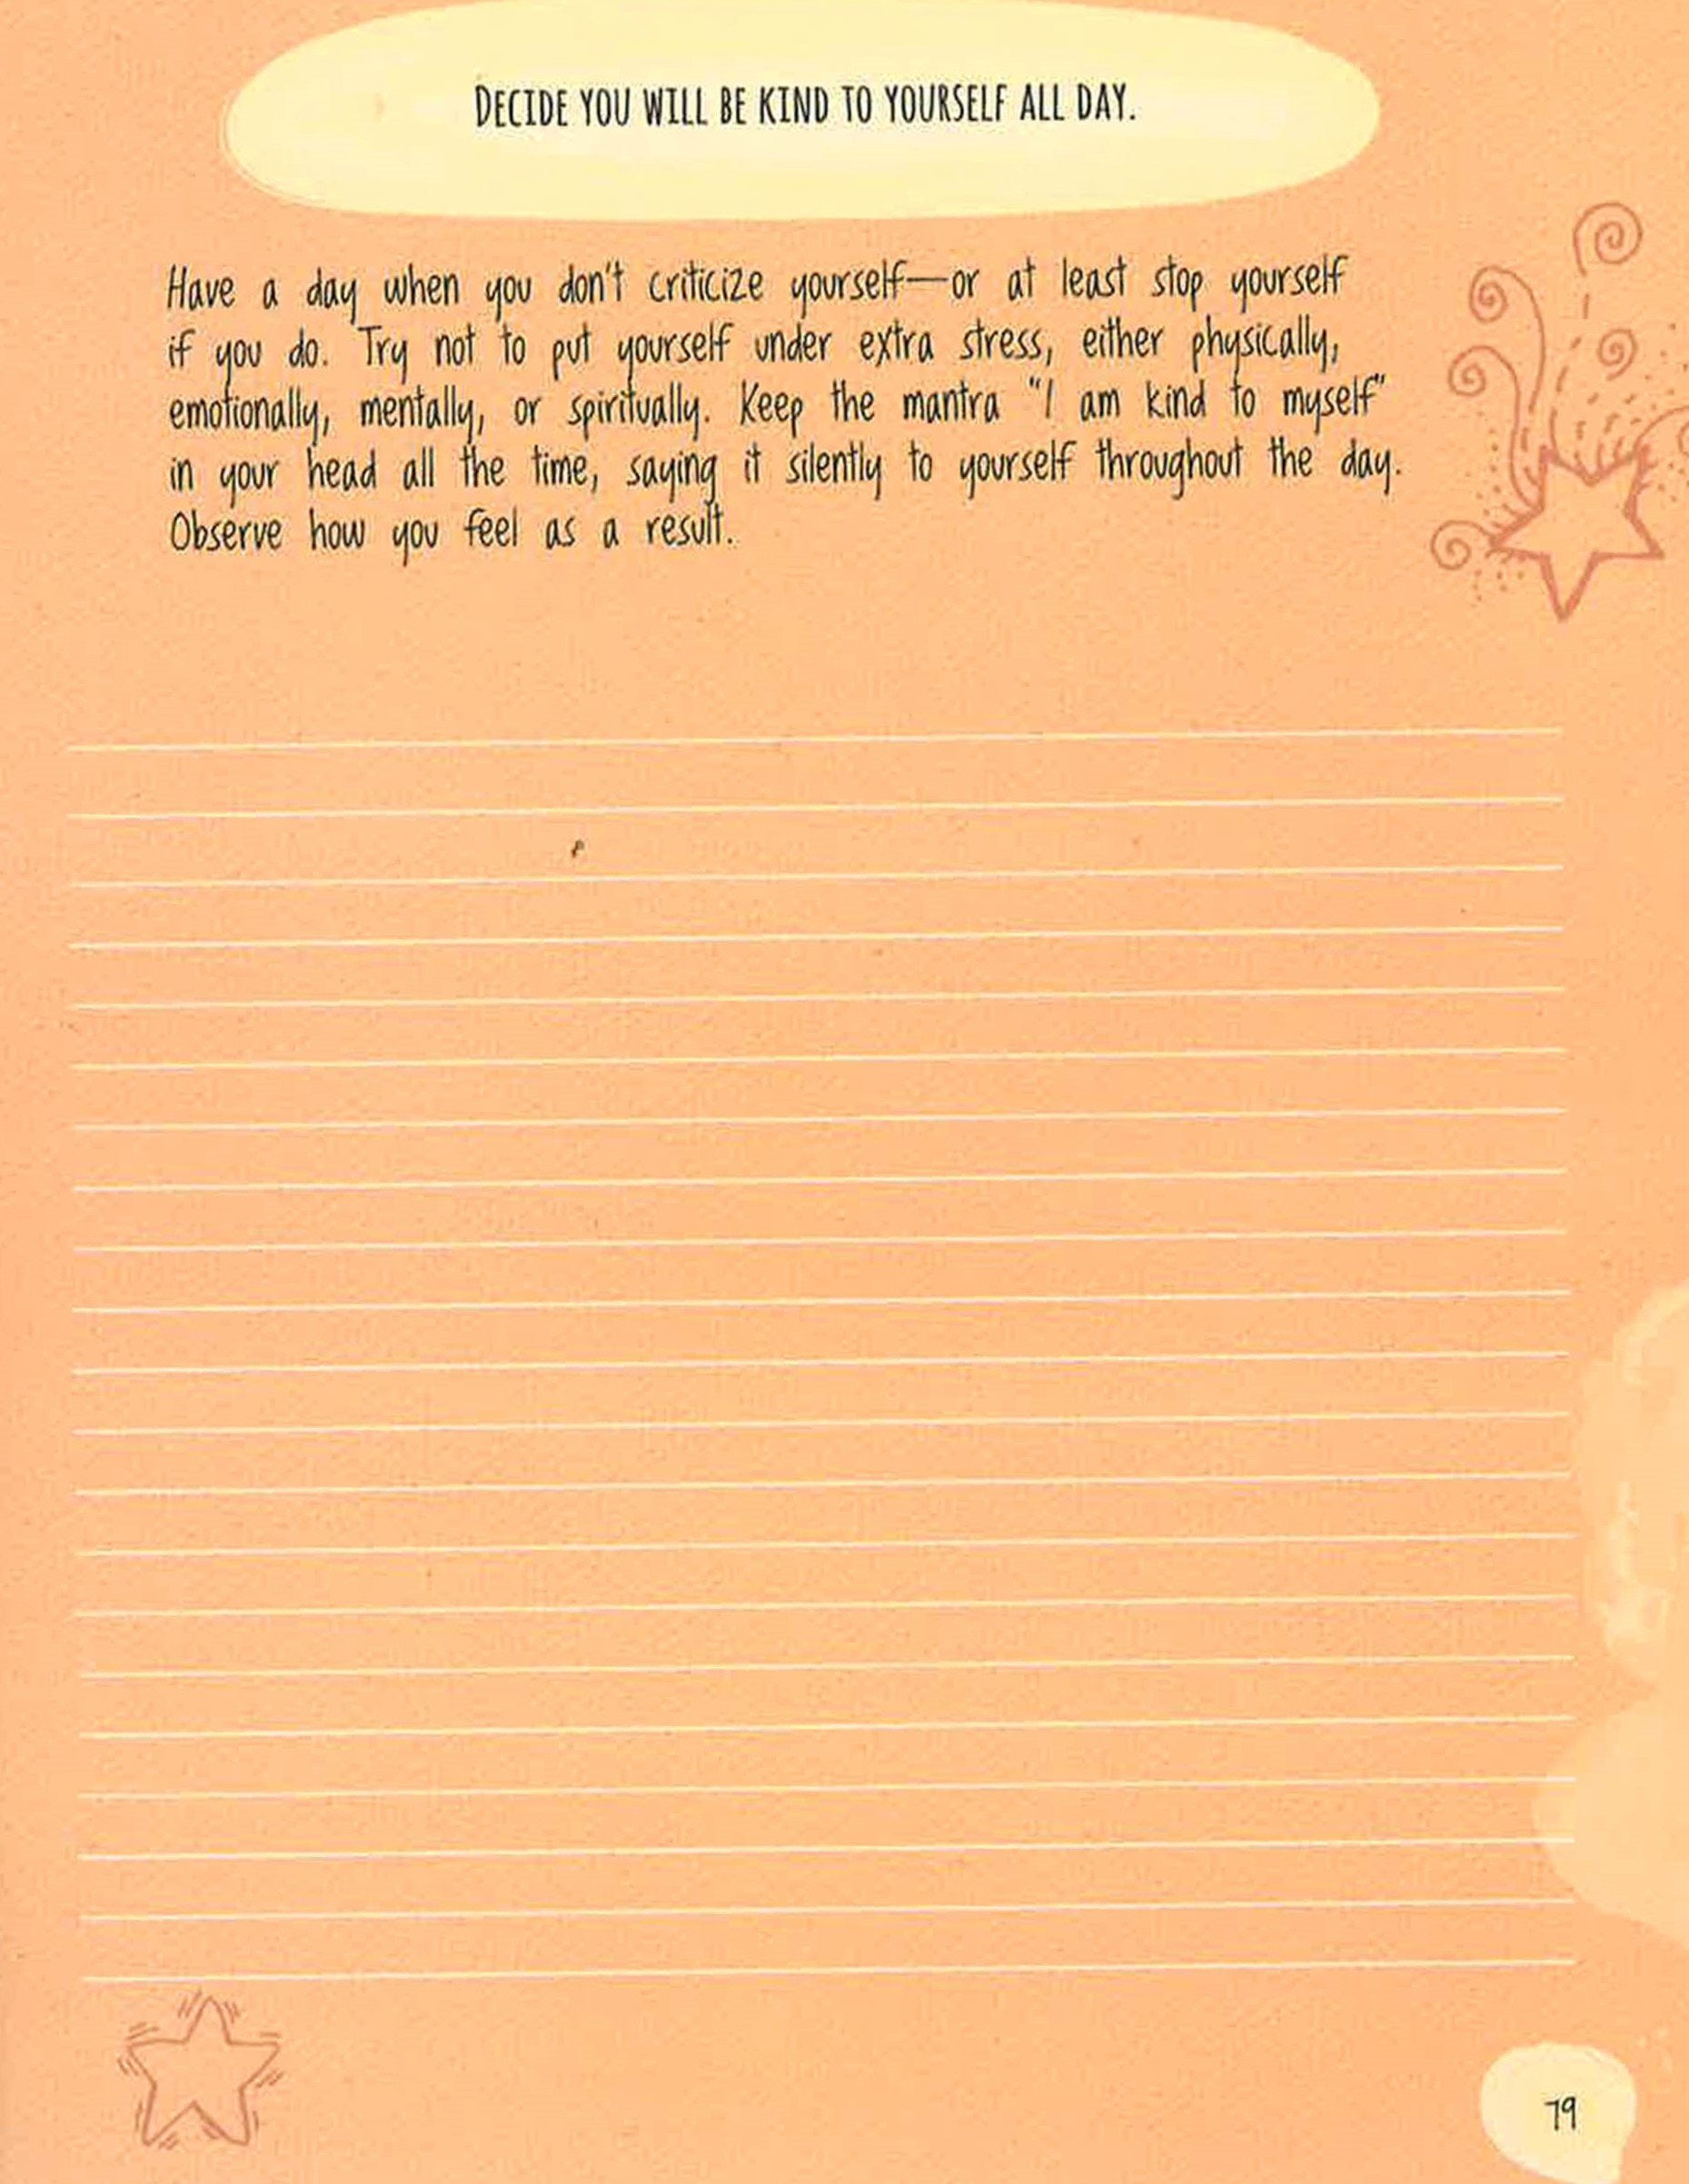 DECIDE YOU WILL BE KIND TO YOURSELF ALL DAY.
Have a day when you don't criticize yourself—or at least stop yourself
if you do. Try not to put yourself under extra stress, either physically,
emotionally, mentally, or spiritually. Keep the mantra "I am kind to myself"
in your head all the time, saying it silently to yourself throughout the day.
Observe how you feel as a result.
79